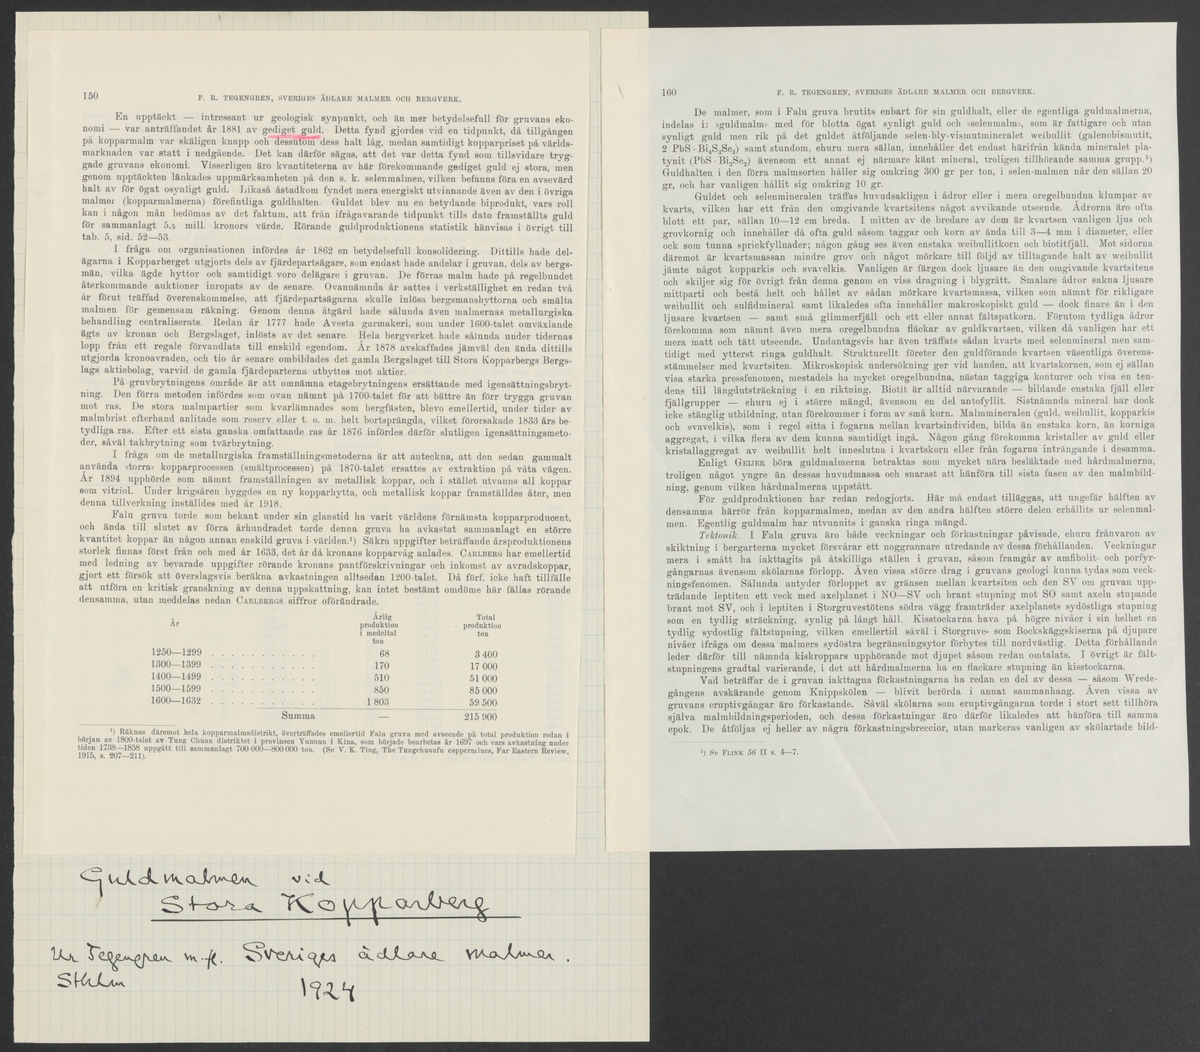 150
F. R. TEGENGREN, SVERIGES ÄDLARE MALMER OCH BERGVERK.
En upptäckt — intressant ur geologisk synpunkt, och än mer betydelsefull för gruvans eko-
nomi — var anträffandet år 1881 av gediget guld. Detta fynd gjordes vid en tidpunkt, då tillgången
på kopparmalm var skäligen knapp och dessutom dess halt låg, medan samtidigt kopparpriset på världs-
marknaden var statt i nedgående. Det kan därför sägas, att det var detta fynd som tillsvidare tryg-
gade gruvans ekonomi. Visserligen äro kvantiteterna av här förekommande gediget guld ej stora, men
genom upptäckten länkades uppmärksamheten på den s. k. selenmalmen, vilken befanns föra en avsevärd
halt av för ögat osynligt guld. Likaså åstadkom fyndet mera energiskt utvinnande även av den i övriga
malmer (kopparmalmerna) förefintliga guldhalten. Guldet blev nu en betydande biprodukt, vars roll
kan i någon mån bedömas av det faktum, att från ifrågavarande tidpunkt tills dato framställts guld
för sammanlagt 5,5 mill. kronors värde. Rörande guldproduktionens statistik hänvisas i övrigt till
tab. 5, sid. 52—53.
I fråga om organisationen infördes år 1862 en betydelsefull konsolidering. Dittills hade del-
ägarna i Kopparberget utgjorts dels av fjärdepartsägare, som endast hade andelar i gruvan, dels av bergs-
män, vilka ägde hyttor och samtidigt voro delägare i gruvan. De förras malm hade på regelbundet
återkommande auktioner inropats av de senare. Ovannämnda år sattes i verkställighet en redan två
år förut träffad överenskommelse, att fjärdepartsägarna skulle inlösa bergsmanshyttorna och smälta
malmen för gemensam räkning. Genom denna åtgärd hade sålunda även malmernas metallurgiska
behandling centraliserats. Redan år 1777 hade Avesta garmakeri, som under 1600-talet omväxlande
ägts av kronan och Bergslaget, inlösts av det senare. Hela bergverket hade sålunda under tidernas
lopp från ett regale förvandlats till enskild egendom. År 1878 avskaffades jämväl den ända dittills
utgjorda kronoavraden, och tio år senare ombildades det gamla Bergslaget till Stora Kopparbergs Bergs-
lags aktiebolag, varvid de gamla fjärdeparterna utbyttes mot aktier.
På gruvbrytningens område är att omnämna etagebrytningens ersättande med igensättningsbryt-
ning. Den förra metoden infördes som ovan nämnt på 1700-talet för att bättre än förr trygga gruvan
mot ras. De stora malmpartier som kvarlämnades som bergfästen, blevo emellertid, under tider av
malmbrist efterhand anlitade som reserv eller t. o. m. helt bortsprängda, vilket förorsakade 1833 års be-
tydliga ras. Efter ett sista ganska omfattande ras år 1876 infördes därför slutligen igensättningsmeto-
der, såväl takbrytning som tvärbrytning.
I fråga om de metallurgiska framställningsmetoderna är att anteckna, att den sedan gammalt
använda »torra» kopparprocessen (smältprocessen) på 1870-talet ersattes av extraktion på våta vägen.
År 1894 upphörde som nämnt framställningen av metallisk koppar, och i stället utvanns all koppar
som vitriol. Under krigsåren byggdes en ny kopparhytta, och metallisk koppar framställdes åter, men
denna tillverkning inställdes med år 1918.
Falu gruva torde som bekant under sin glanstid ha varit världens förnämsta kopparproducent,
och ända till slutet av förra århundradet torde denna gruva ha avkastat sammanlagt en större
kvantitet koppar än någon annan enskild gruva i världen.¹) Säkra uppgifter beträffande årsproduktionens
storlek finnas först från och med år 1633, det år då kronans kopparvåg anlades. CARLBERG har emellertid
med ledning av bevarade uppgifter rörande kronans pantförskrivningar och inkomst av avradskoppar,
gjort ett försök att överslagsvis beräkna avkastningen alltsedan 1200-talet. Då förf. icke haft tillfälle
att utföra en kritisk granskning av denna uppskattning, kan intet bestämt omdöme här fällas rörande
densamma, utan meddelas nedan CARLBERGS siffror oförändrade.
År Årlig produktion i medeltal ton Total produktion ton
1250—1299 . . . . . . . . . . . 68 3 400
1300—1399 . . . . . . . . . . . 170 17 000
1400—1499 . . . . . . . . . . . 510 51 000
1500—1599 . . . . . . . . . . . 850 85 000
1600—1632 . . . . . . . . . . . 1 803 59 500
Summa — 215 900
¹) Räknas däremot hela kopparmalmsdistrikt, överträffades emellertid Falu gruva med avseende på total produktion redan i
början av 1800-talet av Tung Chuan distriktet i provinsen Yunnan i Kina, som började bearbetas år 1697 och vars avkastning under
tiden 1738—1858 uppgått till sammanlagt 700 000—800 000 ton. (Se V. K. Ting, The Tungchuanfu coppermines, Far Eastern Review,
1915, s. 207—211).
Guldmalmen vid
Stora Kopparberg
Ur Tegengren m.fl. Sveriges ädlare malmer.
Sthlm 1924
160
F. R. TEGENGREN, SVERIGES ÄDLARE MALMER OCH BERGVERK.
De malmer, som i Falu gruva brutits enbart för sin guldhalt, eller de egentliga guldmalmerna,
indelas i: »guldmalm» med för blotta ögat synligt guld och »selenmalm», som är fattigare och utan
synligt guld men rik på det guldet åtföljande selen-bly-vismutmineralet weibullit (galenobismutit,
2 PbS · Bi₄S₃Se₃) samt stundom, ehuru mera sällan, innehåller det endast härifrån kända mineralet pla-
tynit (PbS · Bi₂Se₃) ävensom ett annat ej närmare känt mineral, troligen tillhörande samma grupp.¹)
Guldhalten i den förra malmsorten håller sig omkring 300 gr per ton, i selen-malmen når den sällan 20
gr, och har vanligen hållit sig omkring 10 gr.
Guldet och selenmineralen träffas huvudsakligen i ådror eller i mera oregelbundna klumpar av
kvarts, vilken har ett från den omgivande kvartsitens något avvikande utseende. Ådrorna äro ofta
blott ett par, sällan 10—12 cm breda. I mitten av de bredare av dem är kvartsen vanligen ljus och
grovkornig och innehåller då ofta guld såsom taggar och korn av ända till 3—4 mm i diameter, eller
ock som tunna sprickfyllnader; någon gång ses även enstaka weibullitkorn och biotitfjäll. Mot sidorna
däremot är kvartsmassan mindre grov och något mörkare till följd av tilltagande halt av weibullit
jämte något kopparkis och svavelkis. Vanligen är färgen dock ljusare än den omgivande kvartsitens
och skiljer sig för övrigt från denna genom en viss dragning i blygrått. Smalare ådror sakna ljusare
mittparti och bestå helt och hållet av sådan mörkare kvartsmassa, vilken som nämnt för rikligare
weibullit och sulfidmineral samt likaledes ofta innehåller makroskopiskt guld — dock finare än i den
ljusare kvartsen — samt små glimmerfjäll och ett eller annat fältspatkorn. Förutom tydliga ådror
förekomma som nämnt även mera oregelbundna fläckar av guldkvartsen, vilken då vanligen har ett
mera matt och tätt utseende. Undantagsvis har även träffats sådan kvarts med selenmineral men sam-
tidigt med ytterst ringa guldhalt. Strukturellt företer den guldförande kvartsen väsentliga överens-
stämmelser med kvartsiten. Mikroskopisk undersökning ger vid handen, att kvartskornen, som ej sällan
visa starka pressfenomen, mestadels ha mycket oregelbundna, nästan taggiga konturer och visa en ten-
dens till längdutsträckning i en riktning. Biotit är alltid närvarande — bildande enstaka fjäll eller
fjällgrupper — ehuru ej i större mängd, ävensom en del antofyllit. Sistnämnda mineral har dock
icke stänglig utbildning, utan förekommer i form av små korn. Malmmineralen (guld, weibullit, kopparkis
och svavelkis), som i regel sitta i fogarna mellan kvartsindividen, bilda än enstaka korn, än korniga
aggregat, i vilka flera av dem kunna samtidigt ingå. Någon gång förekomma kristaller av guld eller
kristallaggregat av weibullit helt inneslutna i kvartskorn eller från fogarna inträngande i desamma.
Enligt GEIJER böra guldmalmerna betraktas som mycket nära besläktade med hårdmalmerna,
troligen något yngre än dessas huvudmassa och snarast att hänföra till sista fasen av den malmbild-
ning, genom vilken hårdmalmerna uppstått.
För guldproduktionen har redan redogjorts. Här må endast tilläggas, att ungefär hälften av
densamma härrör från kopparmalmen, medan av den andra hälften större delen erhållits ur selenmal-
men. Egentlig guldmalm har utvunnits i ganska ringa mängd.
Tektonik. I Falu gruva äro både veckningar och förkastningar påvisade, ehuru frånvaron av
skiktning i bergarterna mycket försvårar ett noggrannare utredande av dessa förhållanden. Veckningar
mera i smått ha iakttagits på åtskilliga ställen i gruvan, såsom framgår av amfibolit- och porfyr-
gångarnas ävensom skölarnas förlopp. Även vissa större drag i gruvans geologi kunna tydas som veck-
ningsfenomen. Sålunda antyder förloppet av gränsen mellan kvartsiten och den SV om gruvan upp-
trädande leptiten ett veck med axelplanet i NO—SV och brant stupning mot SO samt axeln stupande
brant mot SV, och i leptiten i Storgruvestötens södra vägg framträder axelplanets sydöstliga stupning
som en tydlig sträckning, synlig på långt håll. Kisstockarna hava på högre nivåer i sin helhet en
tydlig sydostlig fältstupning, vilken emellertid såväl i Storgruve- som Bockskäggskiserna på djupare
nivåer ifråga om dessa malmers sydöstra begränsningsytor förbytes till nordvästlig. Detta förhållande
leder därför till nämnda kiskroppars upphörande mot djupet såsom redan omtalats. I övrigt är fält-
stupningens gradtal varierande, i det att hårdmalmerna ha en flackare stupning än kisstockarna.
Vad beträffar de i gruvan iakttagna förkastningarna ha redan en del av dessa — såsom Wrede-
gångens avskärande genom Knippskölen — blivit berörda i annat sammanhang. Även vissa av
gruvans eruptivgångar äro förkastande. Såväl skölarna som eruptivgångarna torde i stort sett tillhöra
själva malmbildningsperioden, och dessa förkastningar äro därför likaledes att hänföra till samma
epok. De åtföljas ej heller av några förkastningsbreccior, utan markeras vanligen av skölartade bild-
¹) Se FLINK 56 II s. 4—7.